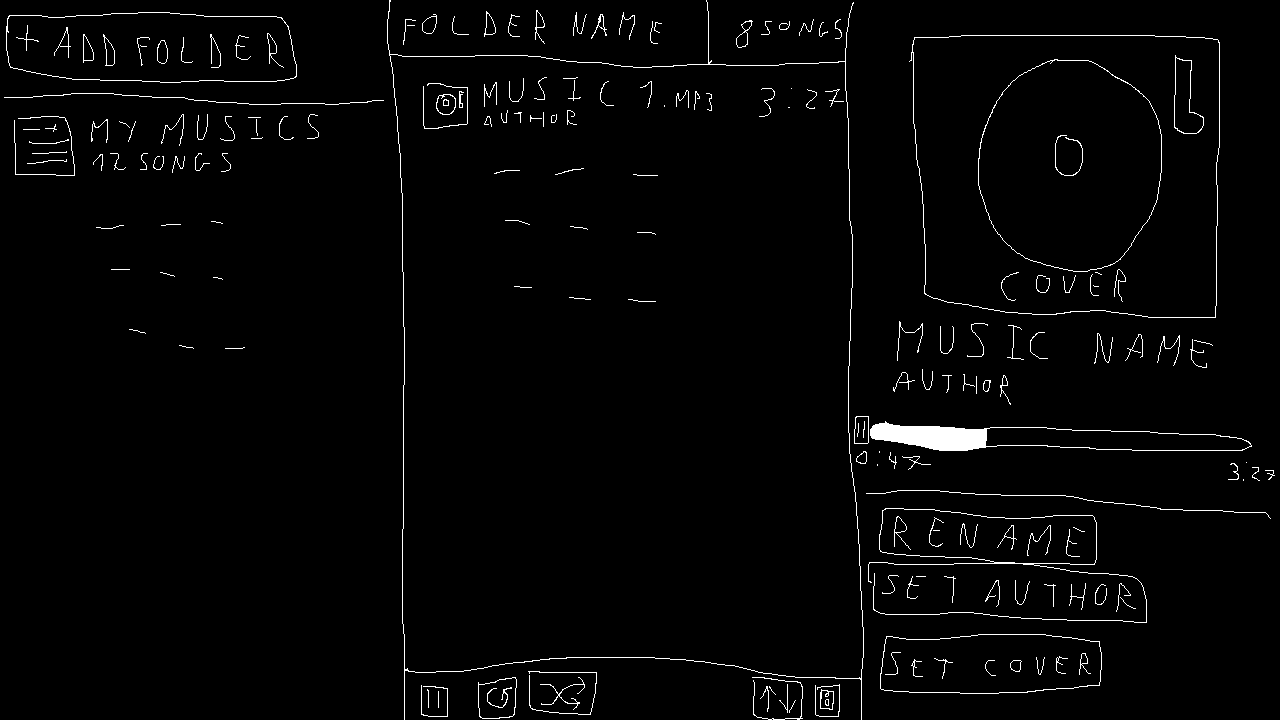 + ADD FOLDER
MY MUSICS
12 SONGS
FOLDER NAME
8 SONGS
MUSIC 1.MP3
3:27
AUTHOR
COVER
MUSIC NAME
AUTHOR
0:47
3:27
RENAME
SET AUTHOR
SET COVER